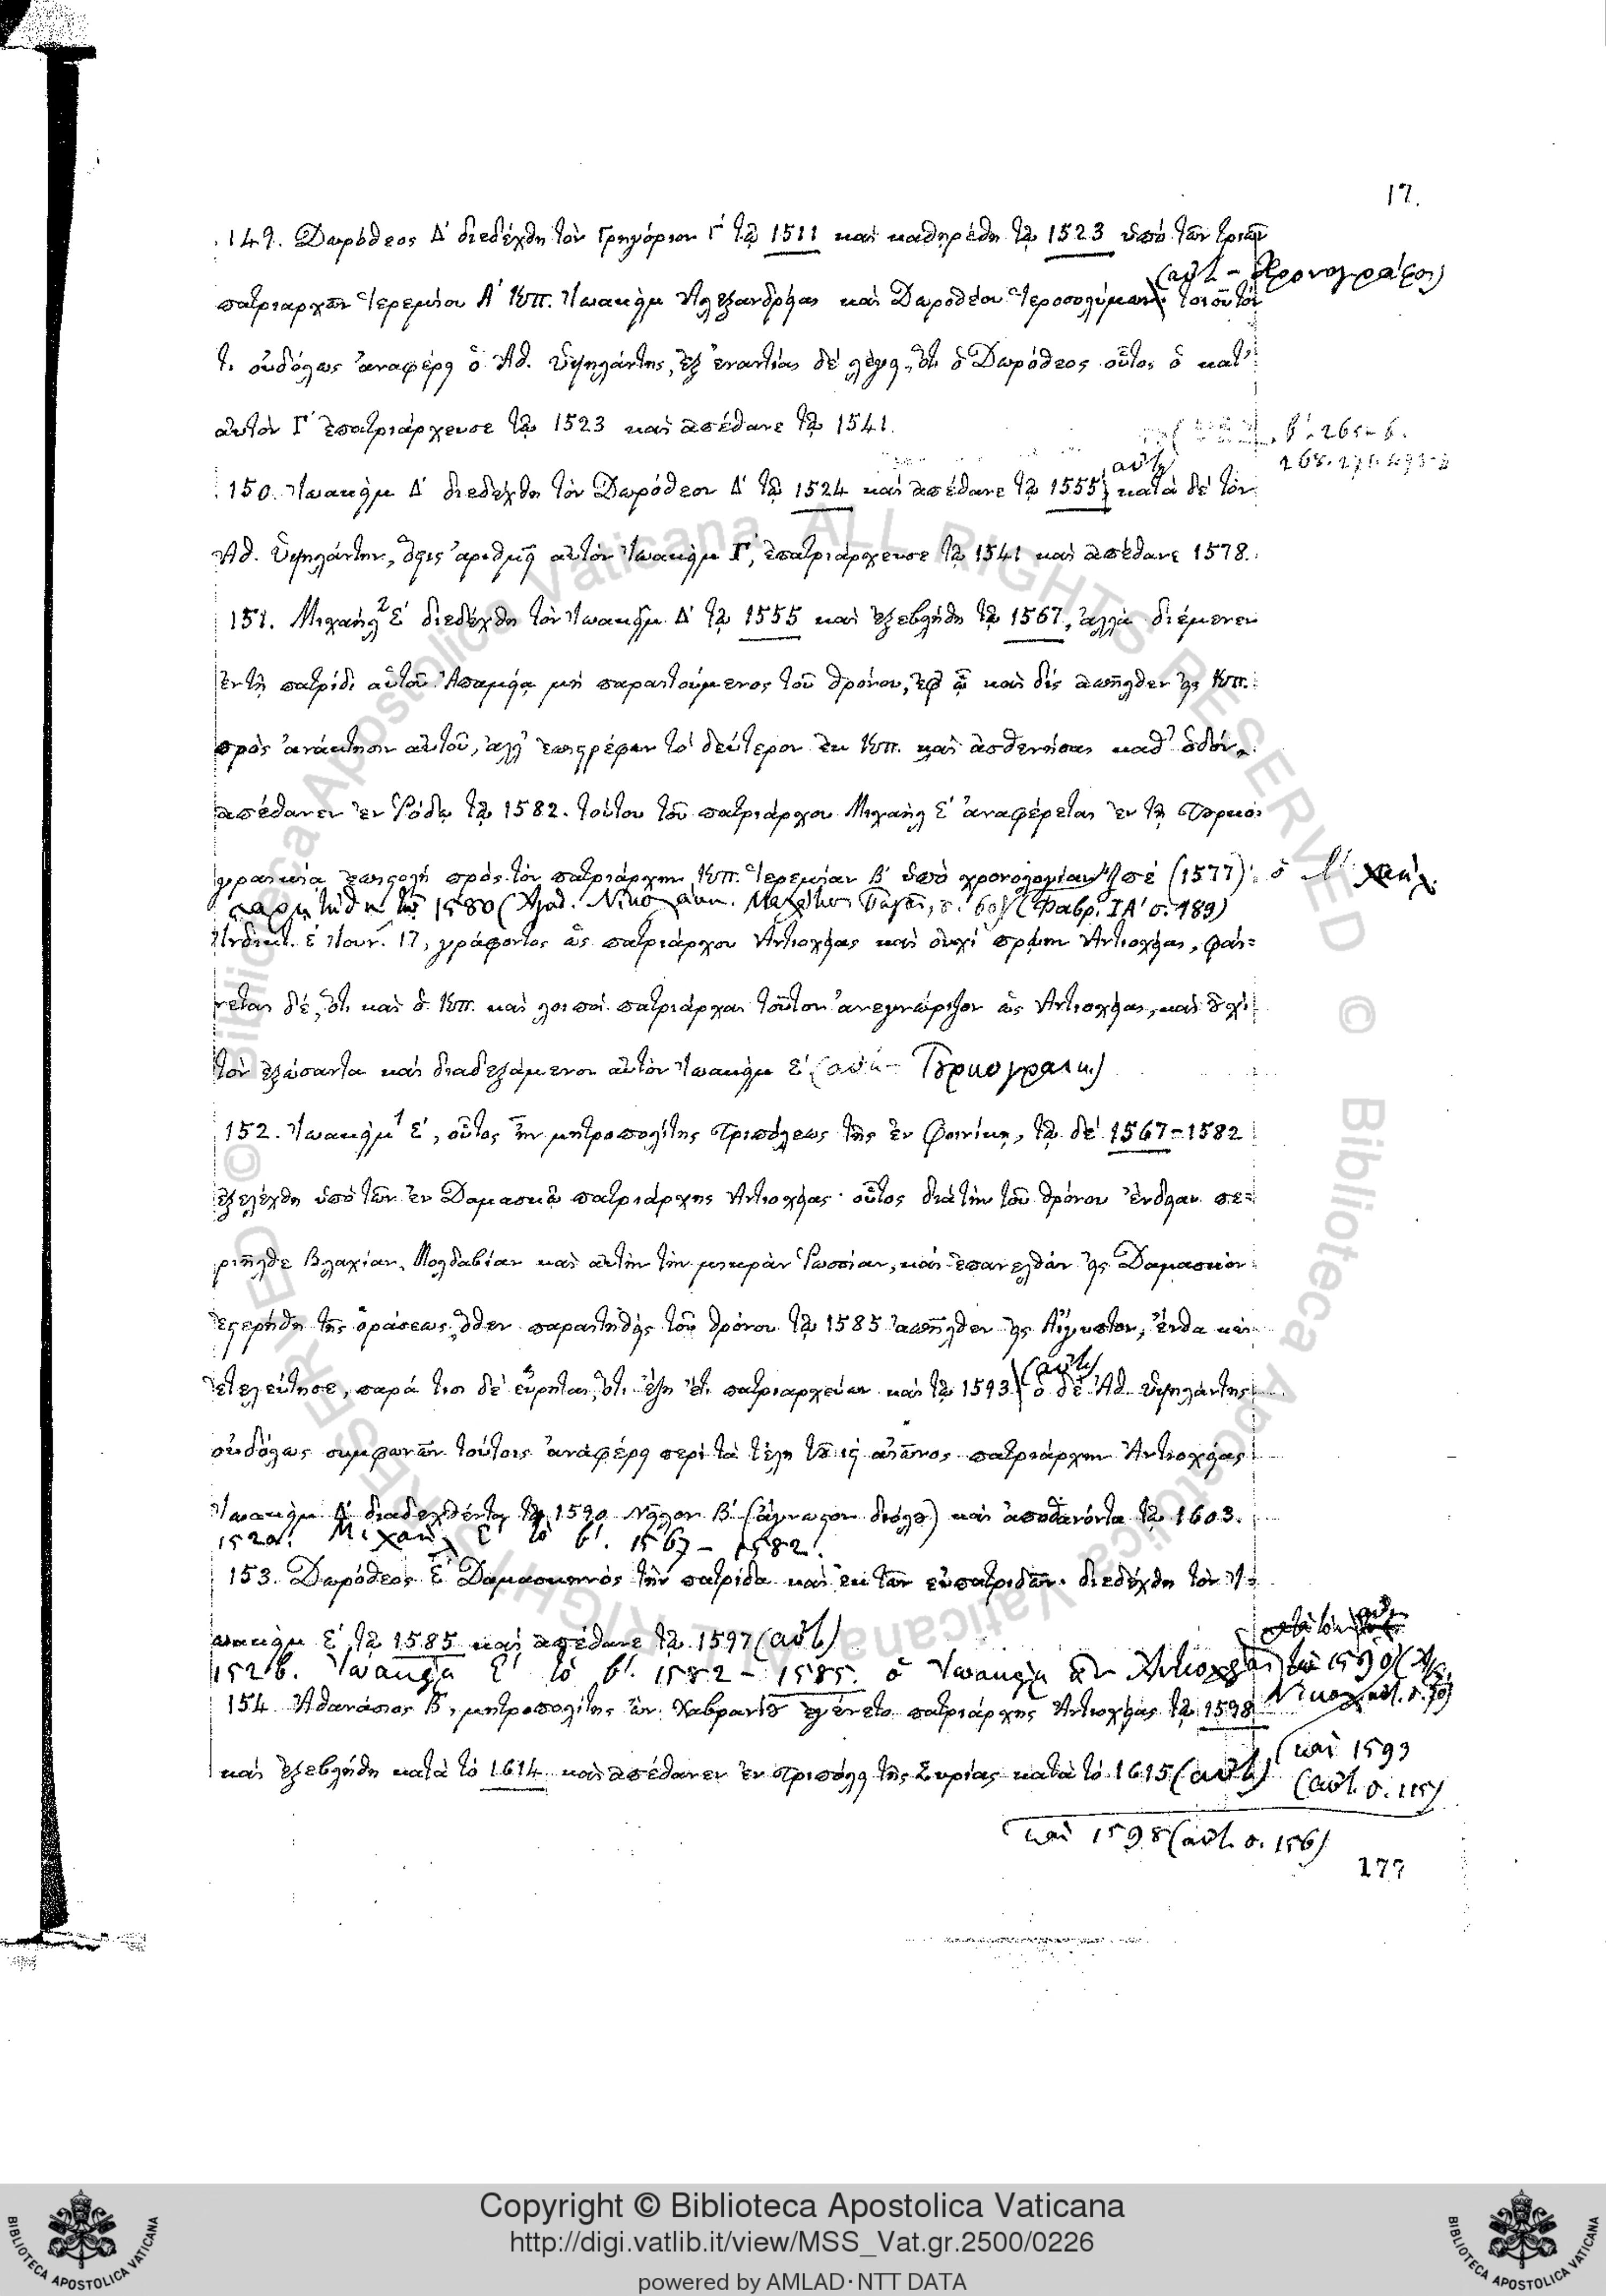 17.
149. Δωρόθεος Δ' διεδέχθη τὸν Γρηγόριον Γ' τῷ 1511 καὶ καθῃρέθη τῷ 1523 ὑπὸ τῶν τριῶν
(αὐτ - Χρονογράφοι)
πατριαρχῶν Ἱερεμίου Α' Κπ. Ἰωακεὶμ Ἀλεξανδρείας καὶ Δωροθέου Ἱεροσολύμων· τοιοῦτόν
τι οὐδόλως ἀναφέρει ὁ Ἀθ. Ὑψηλάντης, ἐξ ἐναντίας δὲ λέγει, ὅτι ὁ Δωρόθεος οὗτος ὁ κατ'
αὐτὸν Γ' ἐπατριάρχευσε τῷ 1523 καὶ ἀπέθανε τῷ 1541.
150. Ἰωακεὶμ Δ' διεδέχθη τὸν Δωρόθεον Δ' τῷ 1524 καὶ ἀπέθανε τῷ 1555 (αὐτ) κατὰ δὲ τὸν
Ἀθ. Ὑψηλάντην, ὅστις ἀριθμεῖ αὐτὸν Ἰωακεὶμ Γ', ἐπατριάρχευσε τῷ 1541 καὶ ἀπέθανε 1578.
151. Μιχαὴλ Ε' διεδέχθη τὸν Ἰωακεὶμ Δ' τῷ 1555 καὶ ἐξεβλήθη τῷ 1567, ἀλλὰ διέμενεν
ἐν τῇ πατρίδι αὐτοῦ Ἀπαμείᾳ μὴ παραιτούμενος τοῦ θρόνου, ἐφ' ᾧ καὶ δὶς ἀπῆλθεν εἰς Κπ.
πρὸς ἀνάκτησιν αὐτοῦ, ἀλλ' ἐπιστρέφων τὸ δεύτερον ἐκ Κπ. καὶ ἀσθενήσας καθ' ὁδόν,
ἀπέθανεν ἐν Ῥόδῳ τῷ 1582. τούτου τοῦ πατριάρχου Μιχαὴλ Ε' ἀναφέρεται ἐν τῇ Τουρκο-
γραικίᾳ ἐπιστολὴ πρὸς τὸν πατριάρχην Κπ. Ἱερεμίαν Β' ὑπὸ χρονολογίαν ͵ζπέ (1577): ὁ Μιχαήλ
παρῃτήθη τῷ 1580 (Φαβρ. ΙΑ' σ. 189)
Ἰνδικτ. έ Ἰουν. 17, γράφοντος ὡς πατριάρχου Ἀντιοχείας καὶ οὐχὶ πρώην Ἀντιοχείας, φαί=
νεται δέ, ὅτι καὶ ὁ Κπ. καὶ λοιποὶ πατριάρχαι τοῦτον ἀνεγνώριζον ὡς Ἀντιοχείας, καὶ οὐχὶ
τὸν ἐξώσαντα καὶ διαδεξάμενον αὐτὸν Ἰωακεὶμ Ε' (αὐτ - Τουρκογραικ.)
152. Ἰωακεὶμ Ε', οὗτος ἦν μητροπολίτης Τριπόλεως τῆς ἐν Φοινίκῃ, τῷ δὲ 1567-1582
ἐξελέχθη ὑπὸ τῶν ἐν Δαμασκῷ πατριάρχης Ἀντιοχείας· οὗτος διὰ τὴν τοῦ θρόνου ἔνδειαν πε=
ριῆλθε Βλαχίαν, Μολδαβίαν καὶ αὐτὴν τὴν μικρὰν Ῥωσσίαν, καὶ ἐπανελθὼν εἰς Δαμασκὸν
ἐστερήθη τῆς ὁράσεως, ὅθεν παραιτηθεὶς τοῦ θρόνου τῷ 1585 ἀπῆλθεν εἰς Αἴγυπτον, ἔνθα καὶ
ἐτελεύτησε, παρά τισι δὲ εὕρηται, ὅτι ἔζη ἔτι πατριαρχεύων καὶ τῷ 1593 (αὐτ) ὁ δὲ Ἀθ. Ὑψηλάντης
οὐδόλως συμφωνῶν τούτοις ἀναφέρει περὶ τὰ τέλη τοῦ ις αἰῶνος πατριάρχην Ἀντιοχείας
Ἰωακεὶμ Δ' διαδεχθέντα τῷ 1590 Νεῖλον Β' (ἄγνωστον διόλου) καὶ ἀποθανόντα τῷ 1603.
152α. Μιχαὴλ Ε' τὸ β'. 1567 - 1582.
153. Δωρόθεος Ε' Δαμασκηνὸς τὴν πατρίδα καὶ ἐκ τῶν εὐπατριδῶν· διεδέχθη τὸν Ἰ-
ωακεὶμ Ε' τῷ 1585 καὶ ἀπέθανε τῷ 1597 (αὐτ)
152β. Ἰωακεὶμ Ε' τὸ β'. 1582 - 1585. ὁ Ἰωακεὶμ Ἀντιοχείας τῷ 1590
154. Ἀθανάσιος Β', μητροπολίτης ὢν Χαβρανίου ἐγένετο πατριάρχης Ἀντιοχείας τῷ 1598
καὶ ἐξεβλήθη κατὰ τὸ 1614 καὶ ἀπέθανεν ἐν Τριπόλει τῆς Συρίας κατὰ τὸ 1615 (αὐτ)
καὶ 1593
(αὐτ. σ. 115)
καὶ 1598 (αὐτ. σ. 156)
177
Copyright © Biblioteca Apostolica Vaticana
http://digi.vatlib.it/view/MSS_Vat.gr.2500/0226
powered by AMLAD·NTT DATA